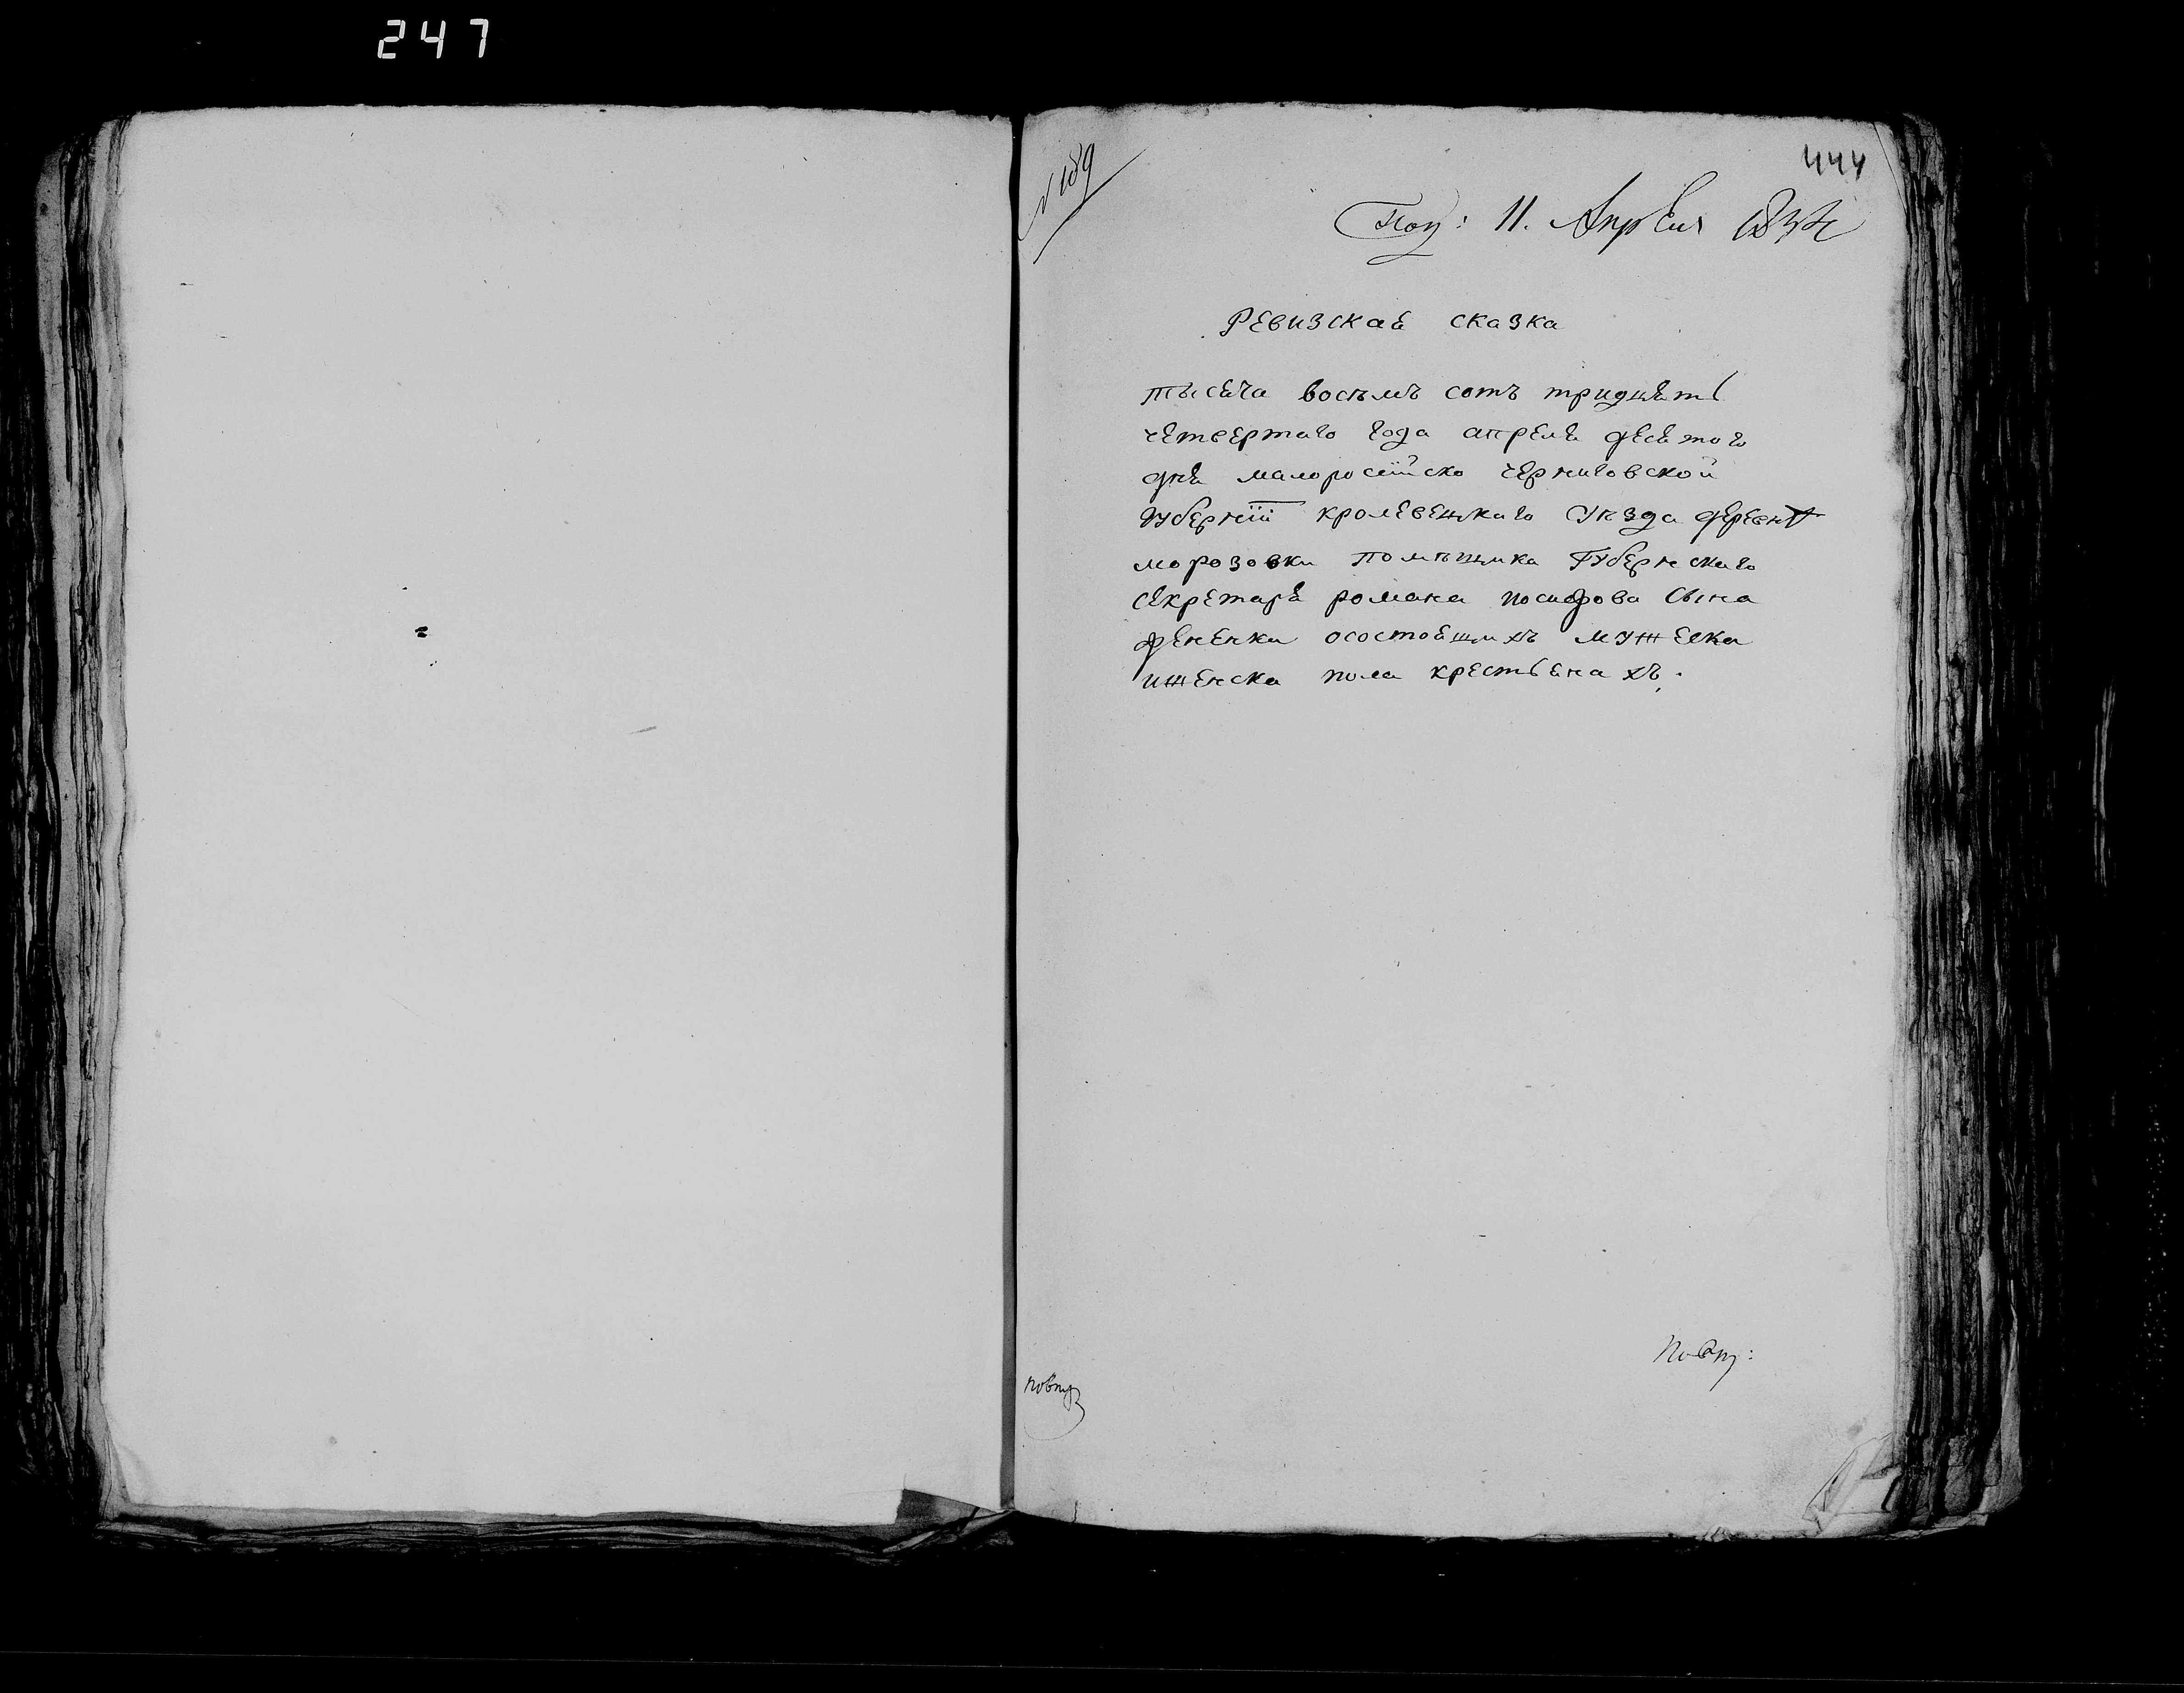 247
№ 189
444
Пол: 11. Апреля 1834
Ревизская сказка
тысяча восѣмъ сотъ тридцять
четвертаго года апреля десятого
дня малоросійско черниговской
губерніи кролевецкаго уѣзда деревни
морозовки помѣщика губернскаго
секретаря романа иосифова сына
осостоящихъ мужеска
иженска пола крестьянахъ.